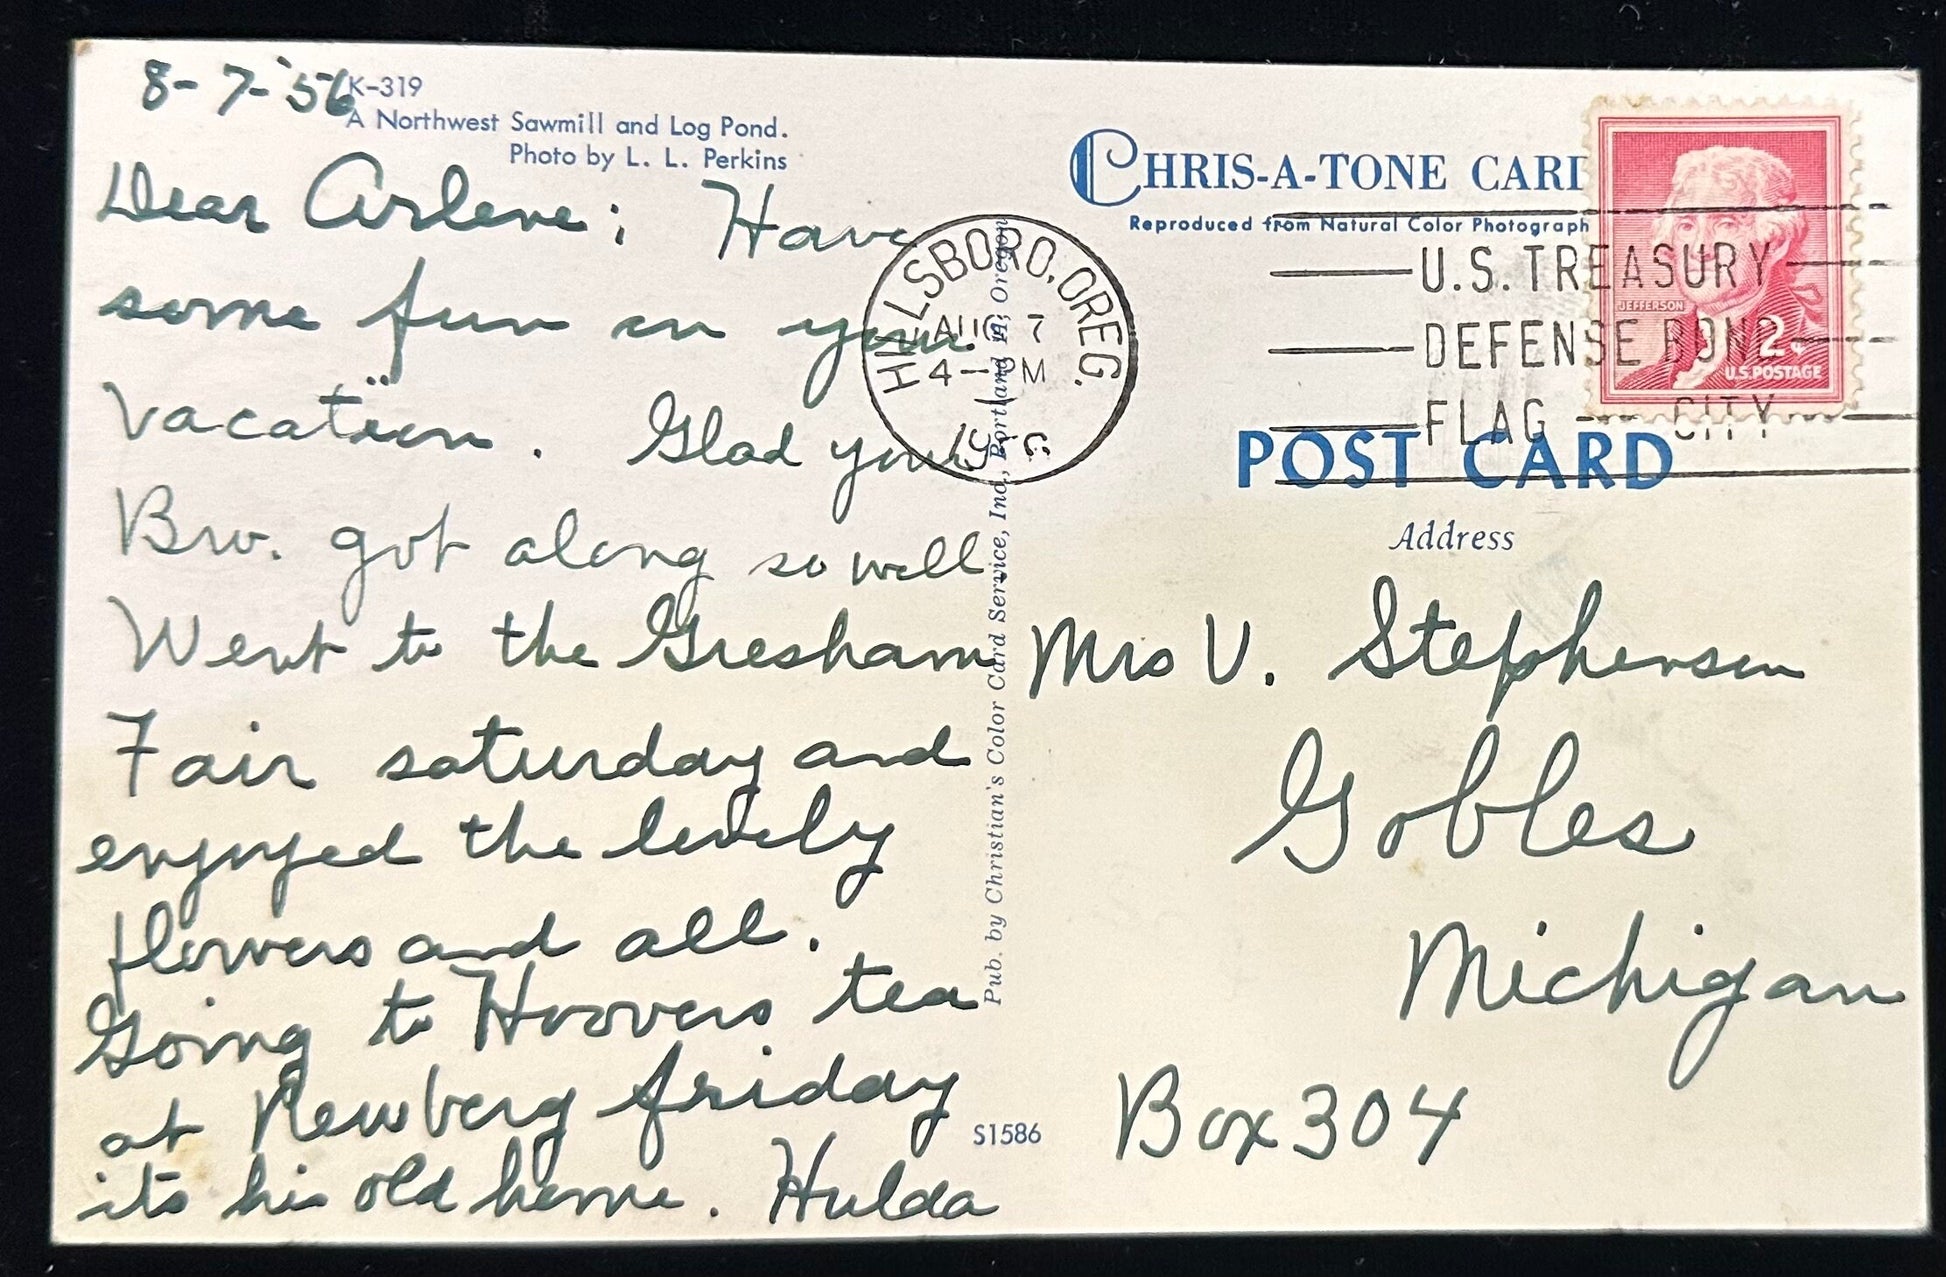 8-7-'56
K-319
A Northwest Sawmill and Log Pond.
Photo by L. L. Perkins
Dear Arlene; Have
some fun on your
vacation. Glad your
Bro. got along so well
Went to the Gresham
Fair saturday and
enjoyed the lovely
flowers and all.
Going to Hoovers tea
at Newberg friday
its his old home. Hulda
Pub. by Christian's Color Card Service, Inc., Portland 19, Oregon
S1586
CHRIS-A-TONE CARD
Reproduced from Natural Color Photograph
HILLSBORO, OREG.
AUG 7
4-PM
U.S. TREASURY
DEFENSE BOND
FLAG CITY
JEFFERSON
2¢
U.S. POSTAGE
POST CARD
Address
Mrs V. Stephenson
Gobles
Michigan
Box 304